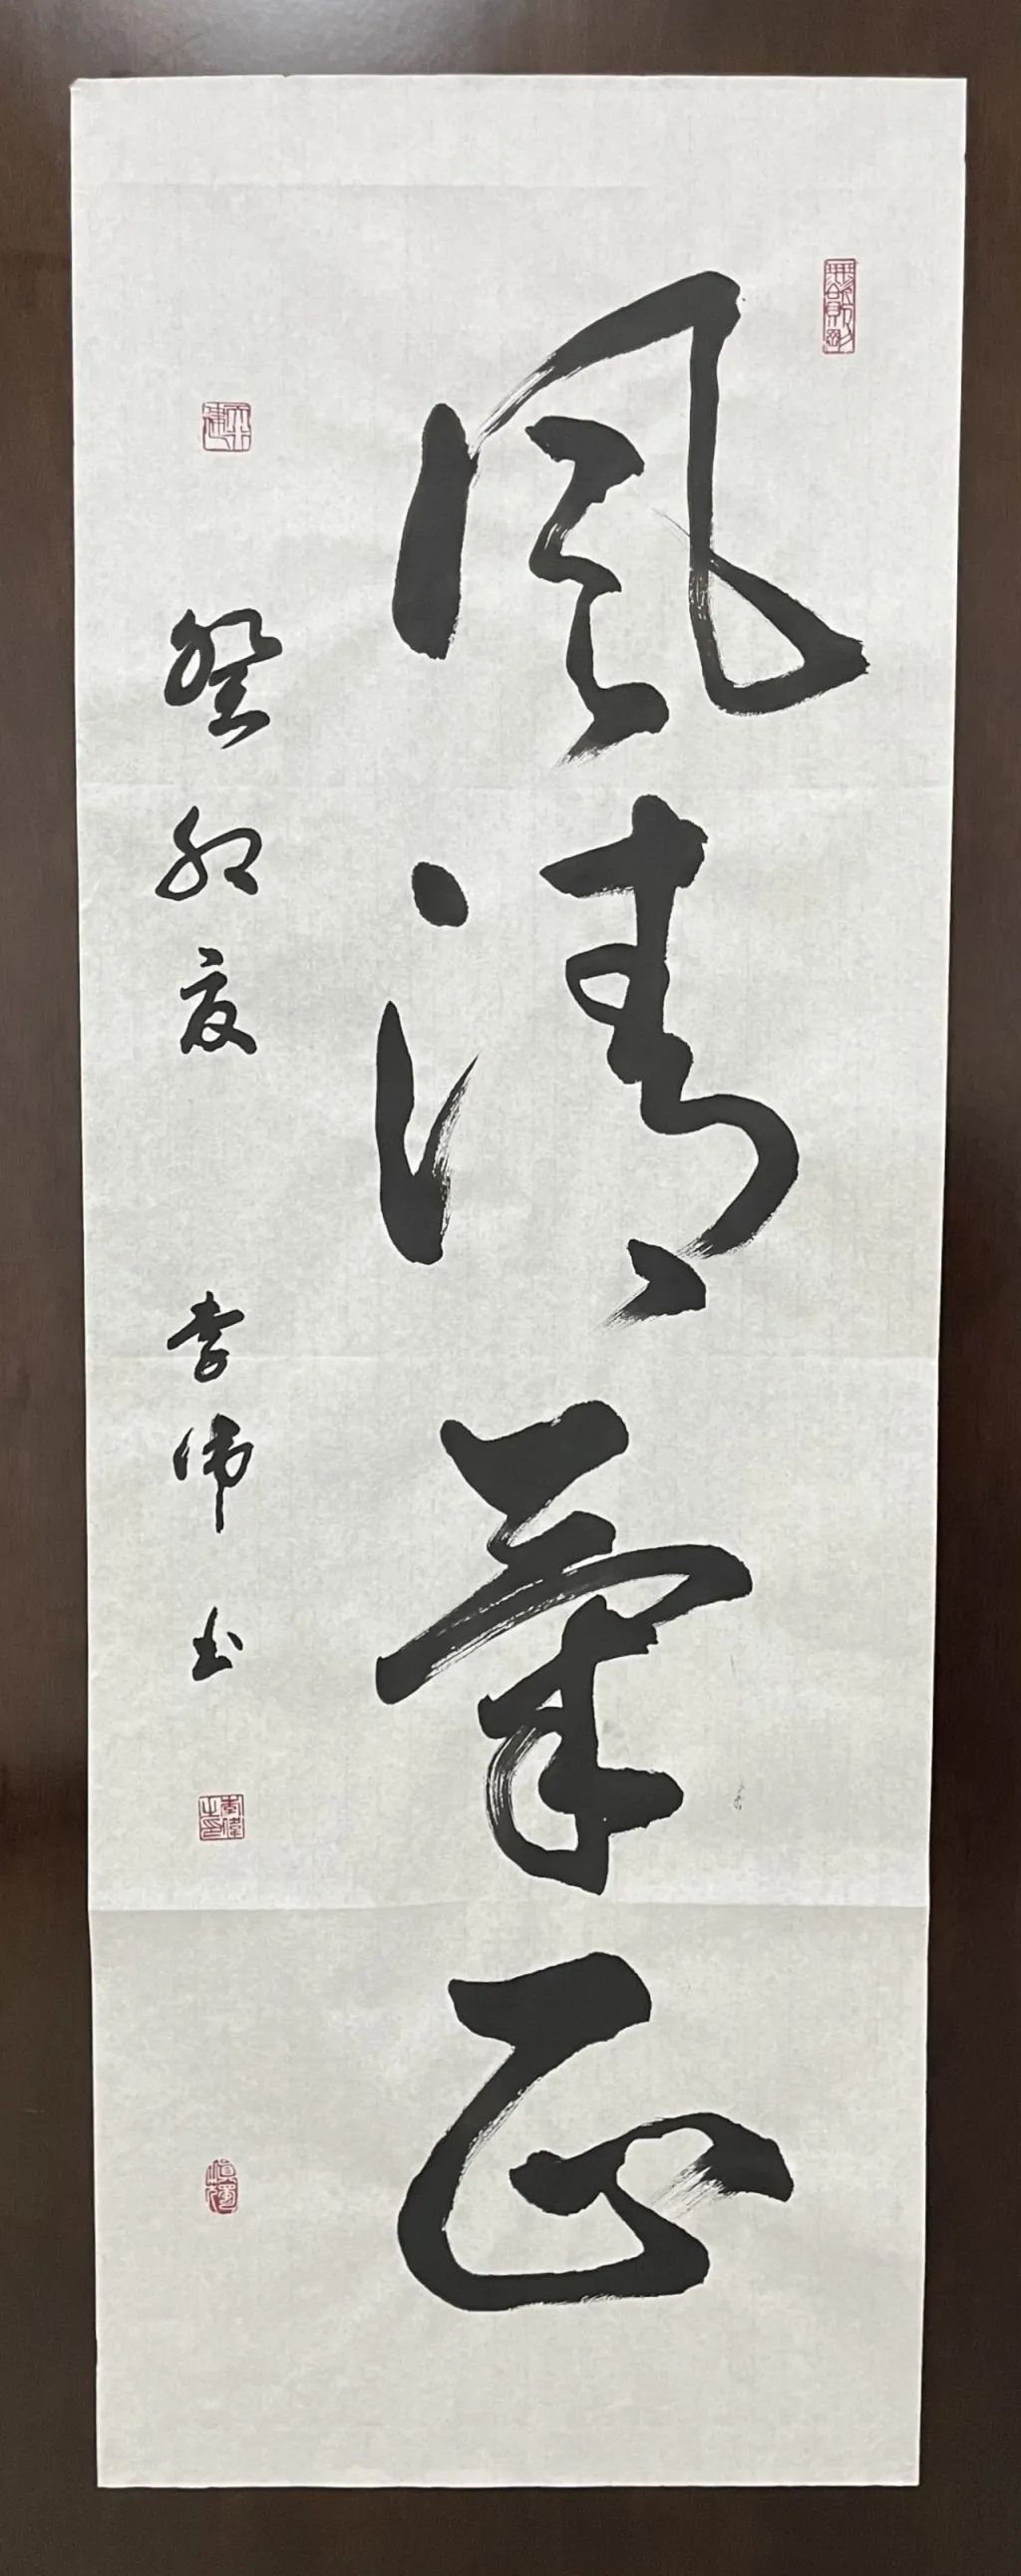 風清氣正
癸卯夏 李偉书